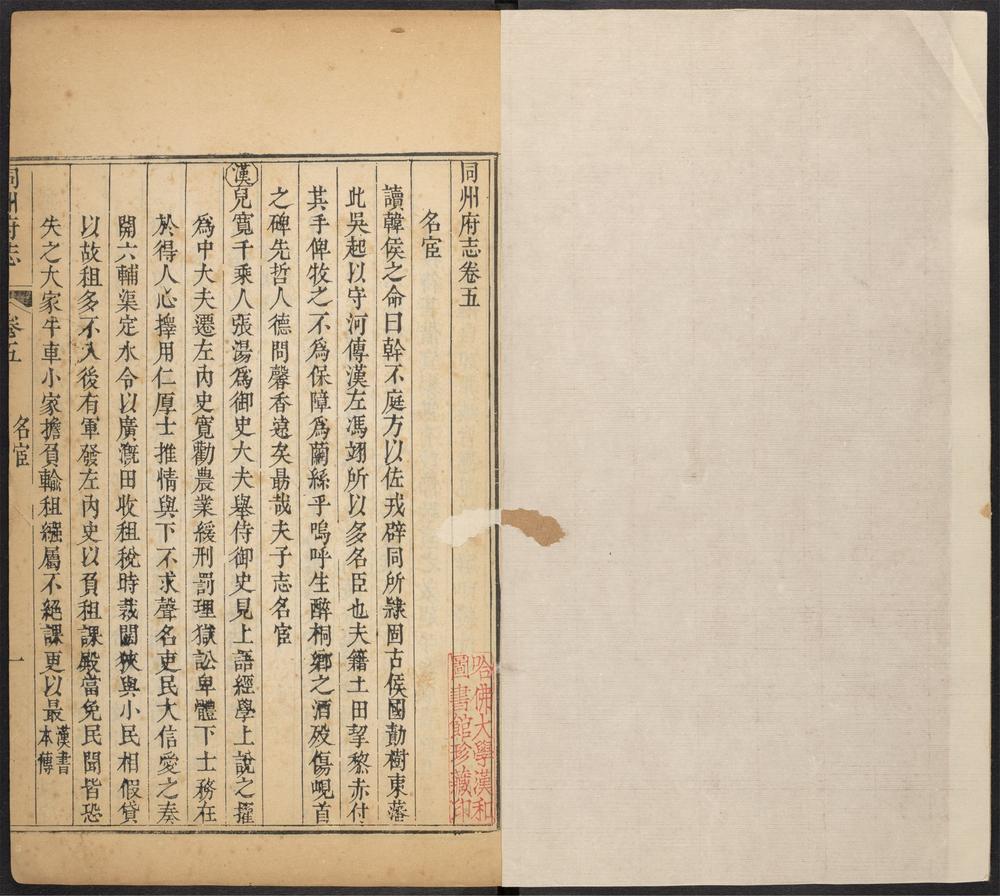 同州府志卷五
名宦
讀韓侯之命曰幹不庭方以佐戎辟同所隸固古侯國勣樹東藩
此吳起以守河傳漢左馮翊所以多名臣也夫籍土田挈黎赤付
其手俾牧之不爲保障爲繭絲乎嗚呼生醉桐鄉之酒歿傷峴首
之碑先哲人德問馨香遠矣勗哉夫子志名宦
漢兒寬千乘人張湯爲御史大夫舉侍御史見上語經學上說之擢
爲中大夫遷左內史寬勸農業緩刑罰理獄訟卑體下士務在
於得人心擇用仁厚士推情與下不求聲名吏民大信愛之奏
開六輔渠定水令以廣漑田收租稅時裁闊狹與小民相假貸
以故租多不入後有軍發左內史以負租課殿當免民聞皆恐
失之大家牛車小家擔負輸租繦屬不絕課更以最漢書
本傳
同州府志
卷五
名宦
一
哈佛大學漢和
圖書館珍藏印